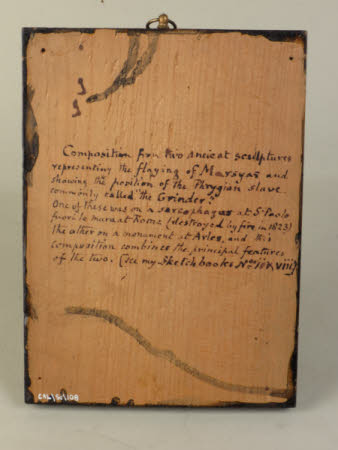 Composition from two ancient sculptures
representing the flaying of Marsyas and
showing the position of the Phrygian slave
commonly called the Grinder.
One of these was on a sarcophagus at S. Paolo
fuori le mura at Rome (destroyed by fire in 1823)
the other on a monument at Arles, and this
composition combines the principal features
of the two. (See my Sketchbooks Nos
CAL/SC/108